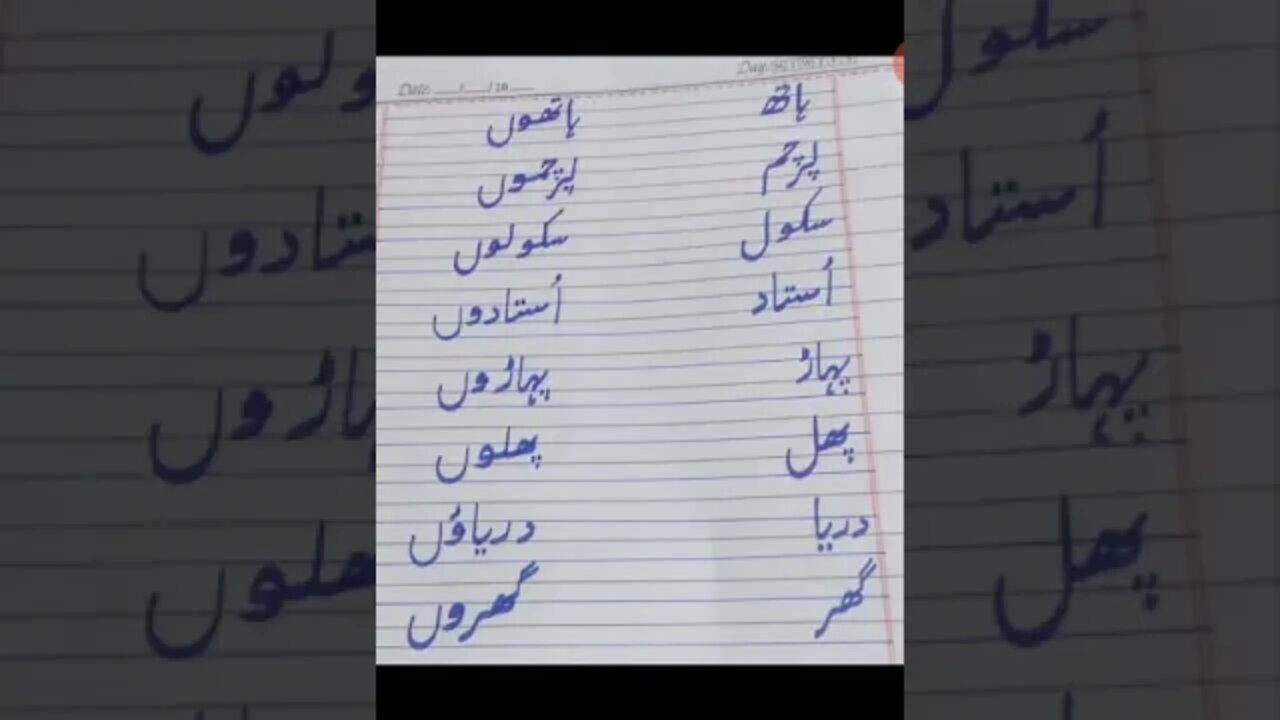 Date ___/___/20___
ہاتھ ہاتھوں
پرچم پرچموں
سکول سکولوں
اُستاد اُستادوں
پہاڑ پہاڑوں
پھل پھلوں
دریا دریاؤں
گھر گھروں